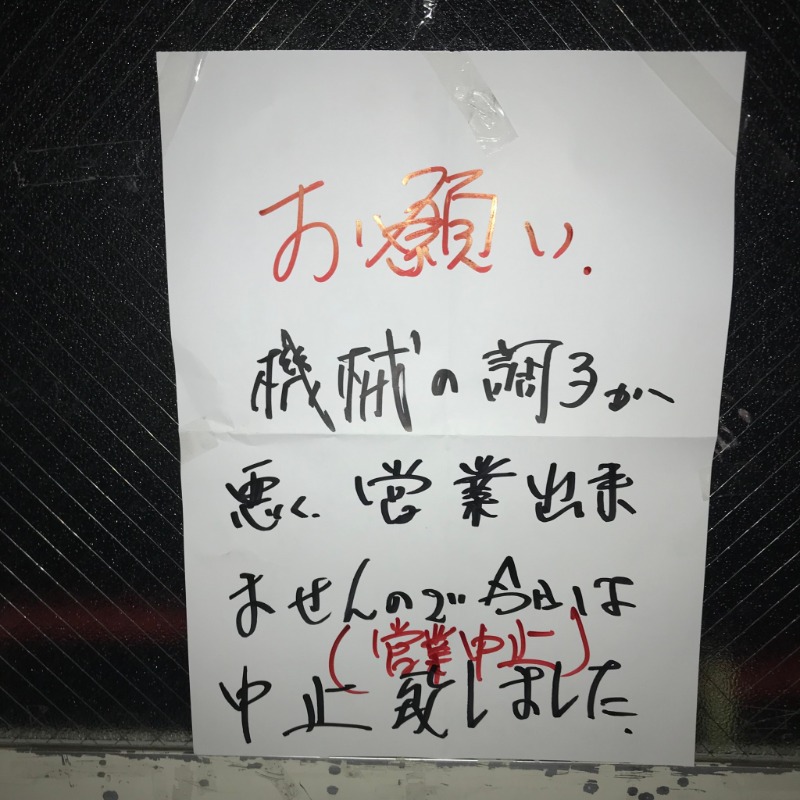 お願い.
機械の調子が
悪く.営業出来
ませんので今日は
(営業中止)
中止致しました.